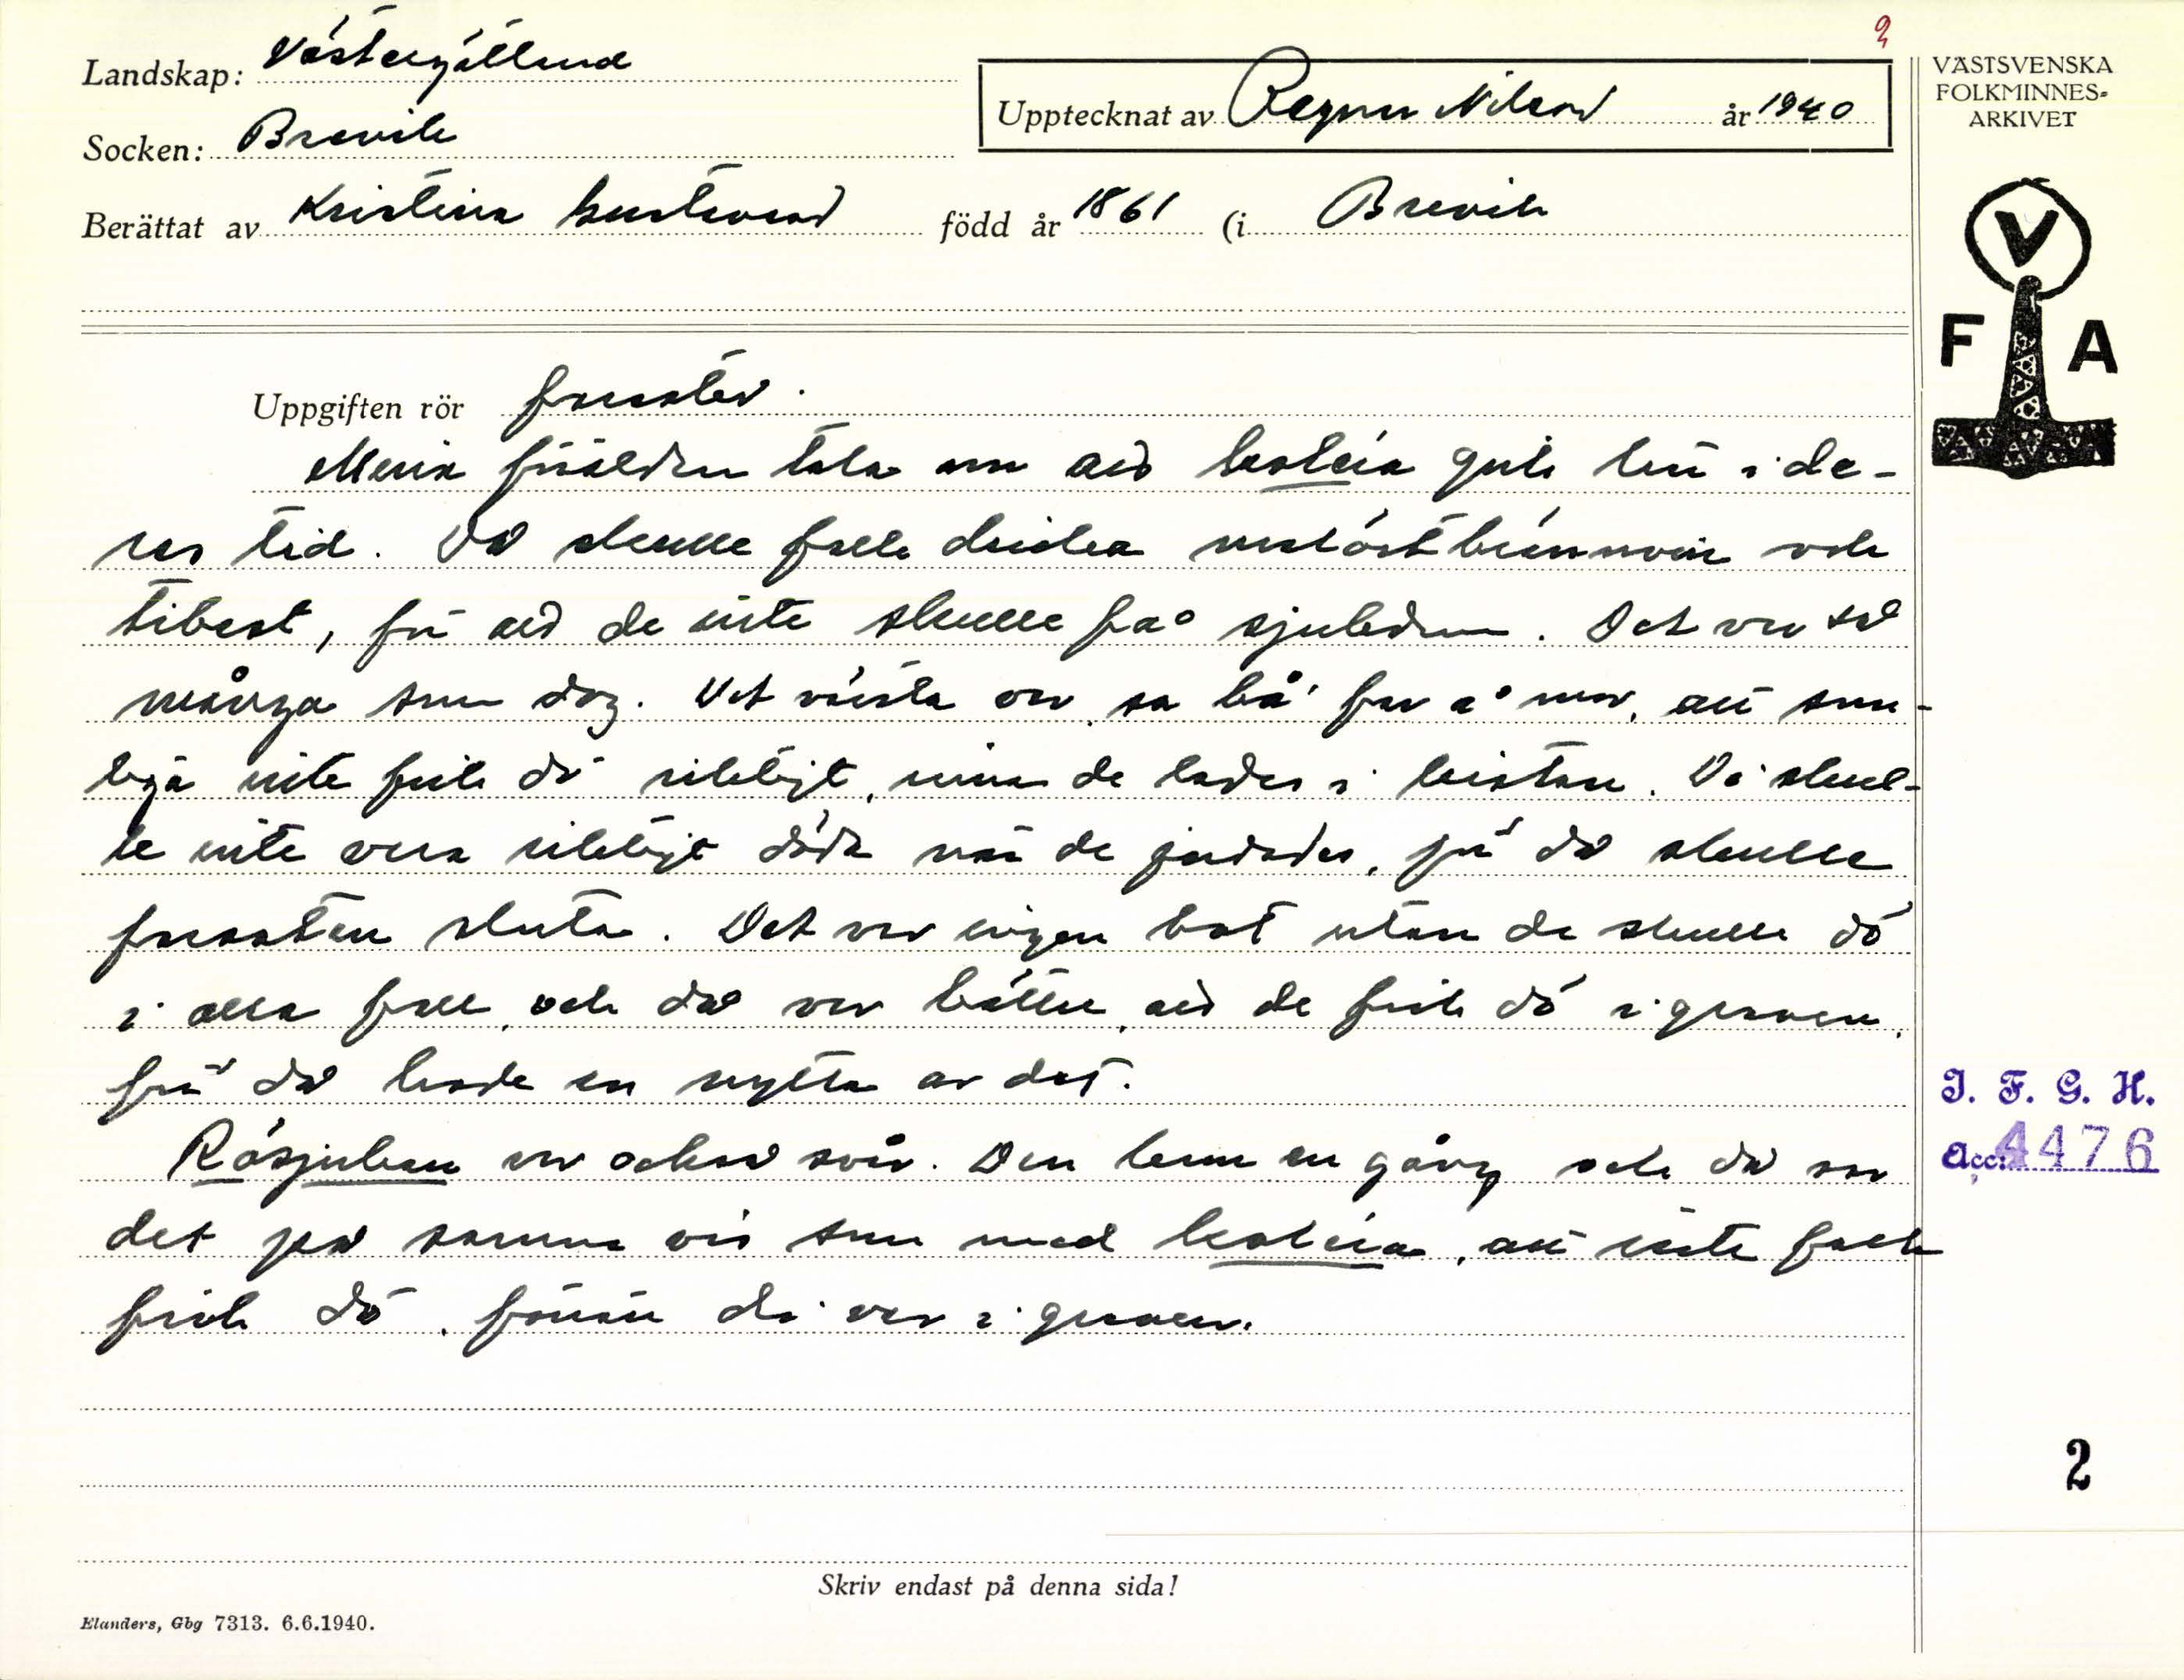 2
Landskap: Västergötland
Socken: Brevik
Upptecknat av Ragnar Nilsson år 1940
Berättat av Kristina Gustavsson född år 1861 (i Brevik
VÄSTSVENSKA
FOLKMINNES-
ARKIVET
V
F A
Uppgiften rör farsoter.
Mina föräldrar tala om att kolera gick här i de-
ras tid. Då skulle folk dricka malörtbrännvin och
tibast, för att de inte skulle få sjukdomen. Det var så
många som dog. Det värsta var, sa bå' far å mor, att som-
liga inte fick dö riktigt, innan de lades i kistan. De skul-
le inte vara riktigt döda när de jordades, för då skulle
farsoten sluta. Det var ingen bot utan de skulle dö
i alla fall, och då var bättre, att de fick dö i graven,
för då hade en nytta av det.
Rösjukan var också svår. Den kom en gång och då var
det på samma vis som med kolera, att inte folk
fick dö, förrän di var i graven.
I. F. G. H.
Acc. 4476
2
Skriv endast på denna sida!
Elanders, Gbg 7313. 6.6.1940.